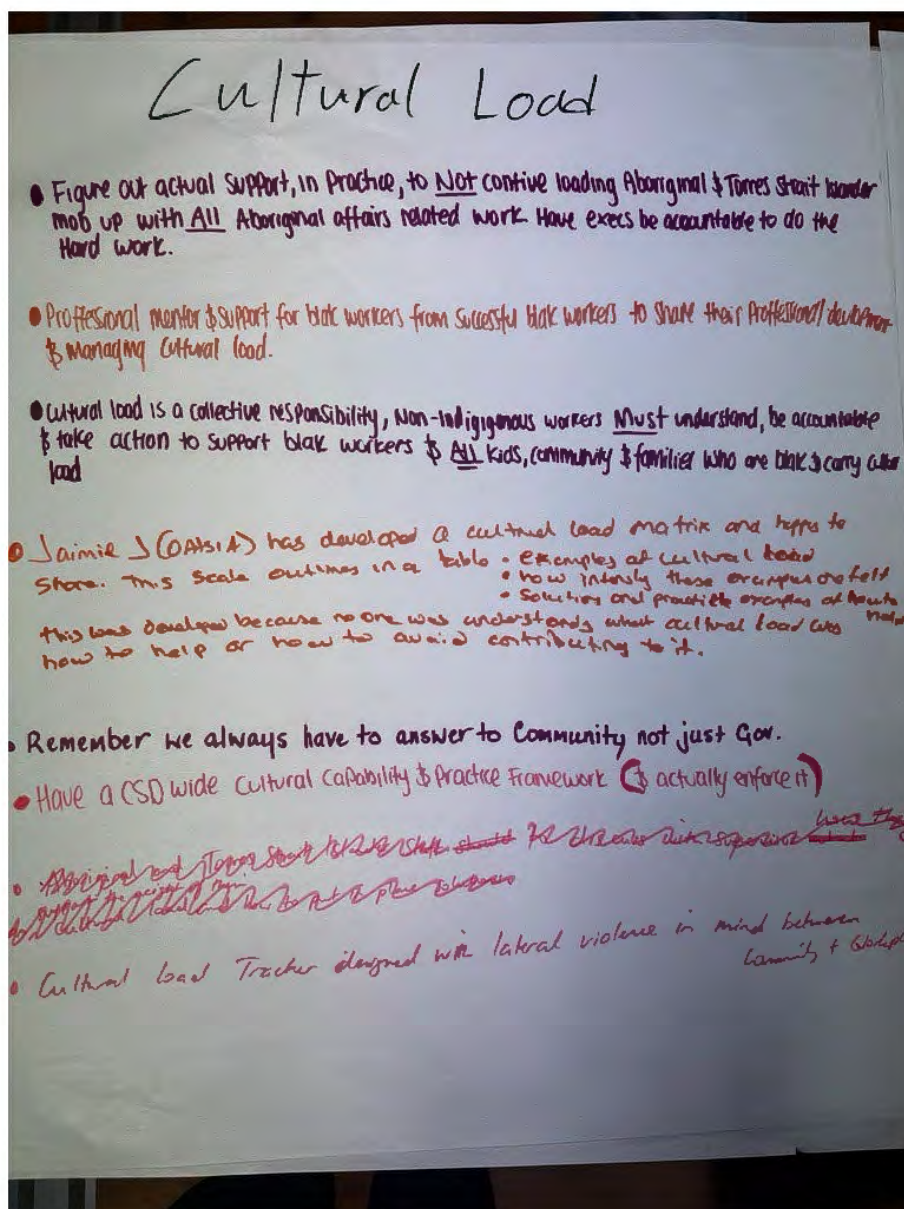 Cultural Load
• Figure out actual support, in Practice, to NOT contive loading Aboriginal & Torres Strait Islander
mob up with ALL Aboriginal affairs related work. Have execs be accountable to do the
Hard work.
• Proffessional mentor & support for blak workers from successful blak workers to share their Proffessional development
& managing cultural load.
• Cultural load is a collective responsibility, Non-Indigigenous workers Must understand, be accountable
& take action to support blak workers & ALL kids, community & families who are blak & carry cultural
load
• Jaimie J (OATSIA) has developed a cultural load matrix and happy to
share. This scale outlines in a table • examples of cultural load
• how intensly these examples are felt
• Solutions and practicle examples of how to
help
This was developed because no one was understands what cultural load was
how to help or how to avoid contributing to it.
• Remember we always have to answer to Community not just Gov.
• Have a CSD wide Cultural Capability & Practice Framework (& actually enforce it)
• Aboriginal and Torres Strait
• Cultural load Tracker designed with lateral violence in mind between
Community +